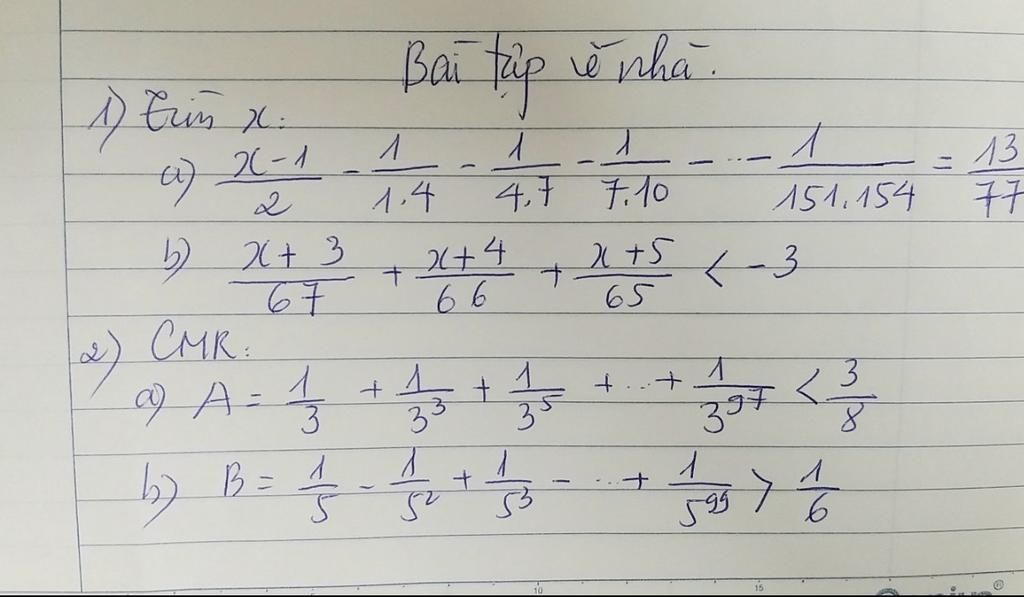 Bài tập về nhà.
1) Tìm x:
a) \frac{x-1}{2} - \frac{1}{1.4} - \frac{1}{4.7} - \frac{1}{7.10} - ... - \frac{1}{151.154} = \frac{13}{77}
b) \frac{x+3}{67} + \frac{x+4}{66} + \frac{x+5}{65} < -3
2) CMR:
a) A = \frac{1}{3} + \frac{1}{3^3} + \frac{1}{3^5} + ... + \frac{1}{3^{97}} < \frac{3}{8}
b) B = \frac{1}{5} - \frac{1}{5^2} + \frac{1}{5^3} - ... + \frac{1}{5^{99}} > \frac{1}{6}
10 15